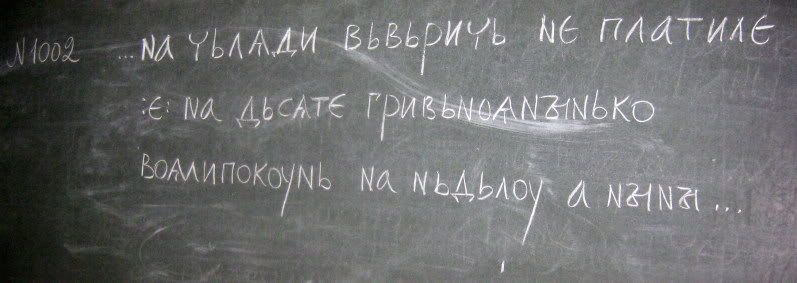 N1002 ...на чьлѧди вьвьричь не платиле
:е: на дьсѧте гривьноѧнꙑнько
воѧлипокоунь на ньдьлоу а нꙑнꙑ...